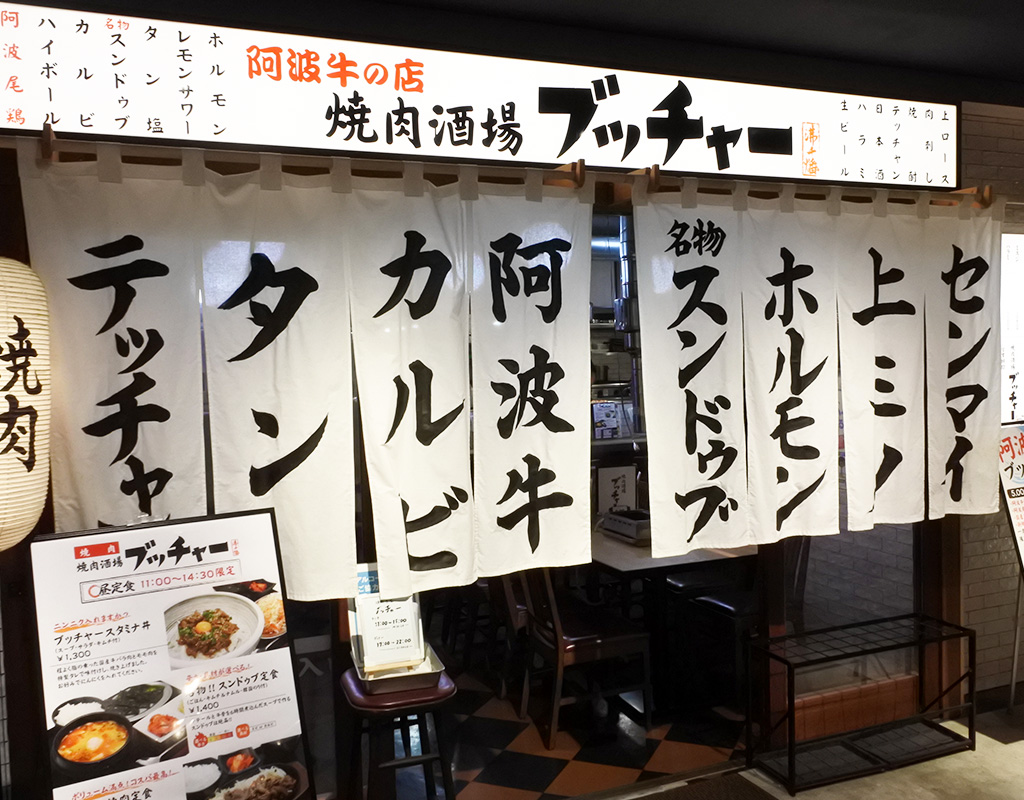 阿波尾鶏
ハイボール
カルビ
名物
スンドゥブ
タン塩
レモンサワー
ホルモン
阿波牛の店
焼肉酒場
ブッチャー
生ビール
ハラミ
日本酒
テッチャン
焼酎
肉刺し
上ロース
テッチャ
タン
カルビ
阿波牛
名物
スンドゥブ
ホルモン
上ミノ
センマイ
焼肉
焼肉
焼肉酒場
ブッチャー
昼定食 11:00〜14:30限定
ニンニク入れますか?
ブッチャースタミナ丼
(スープ・サラダ・キムチ付)
¥1,300
スンドゥブ定食
¥1,400
ボリューム満点!コスパ最高!
17:00-22:00
ブッチャー
ブッチャー